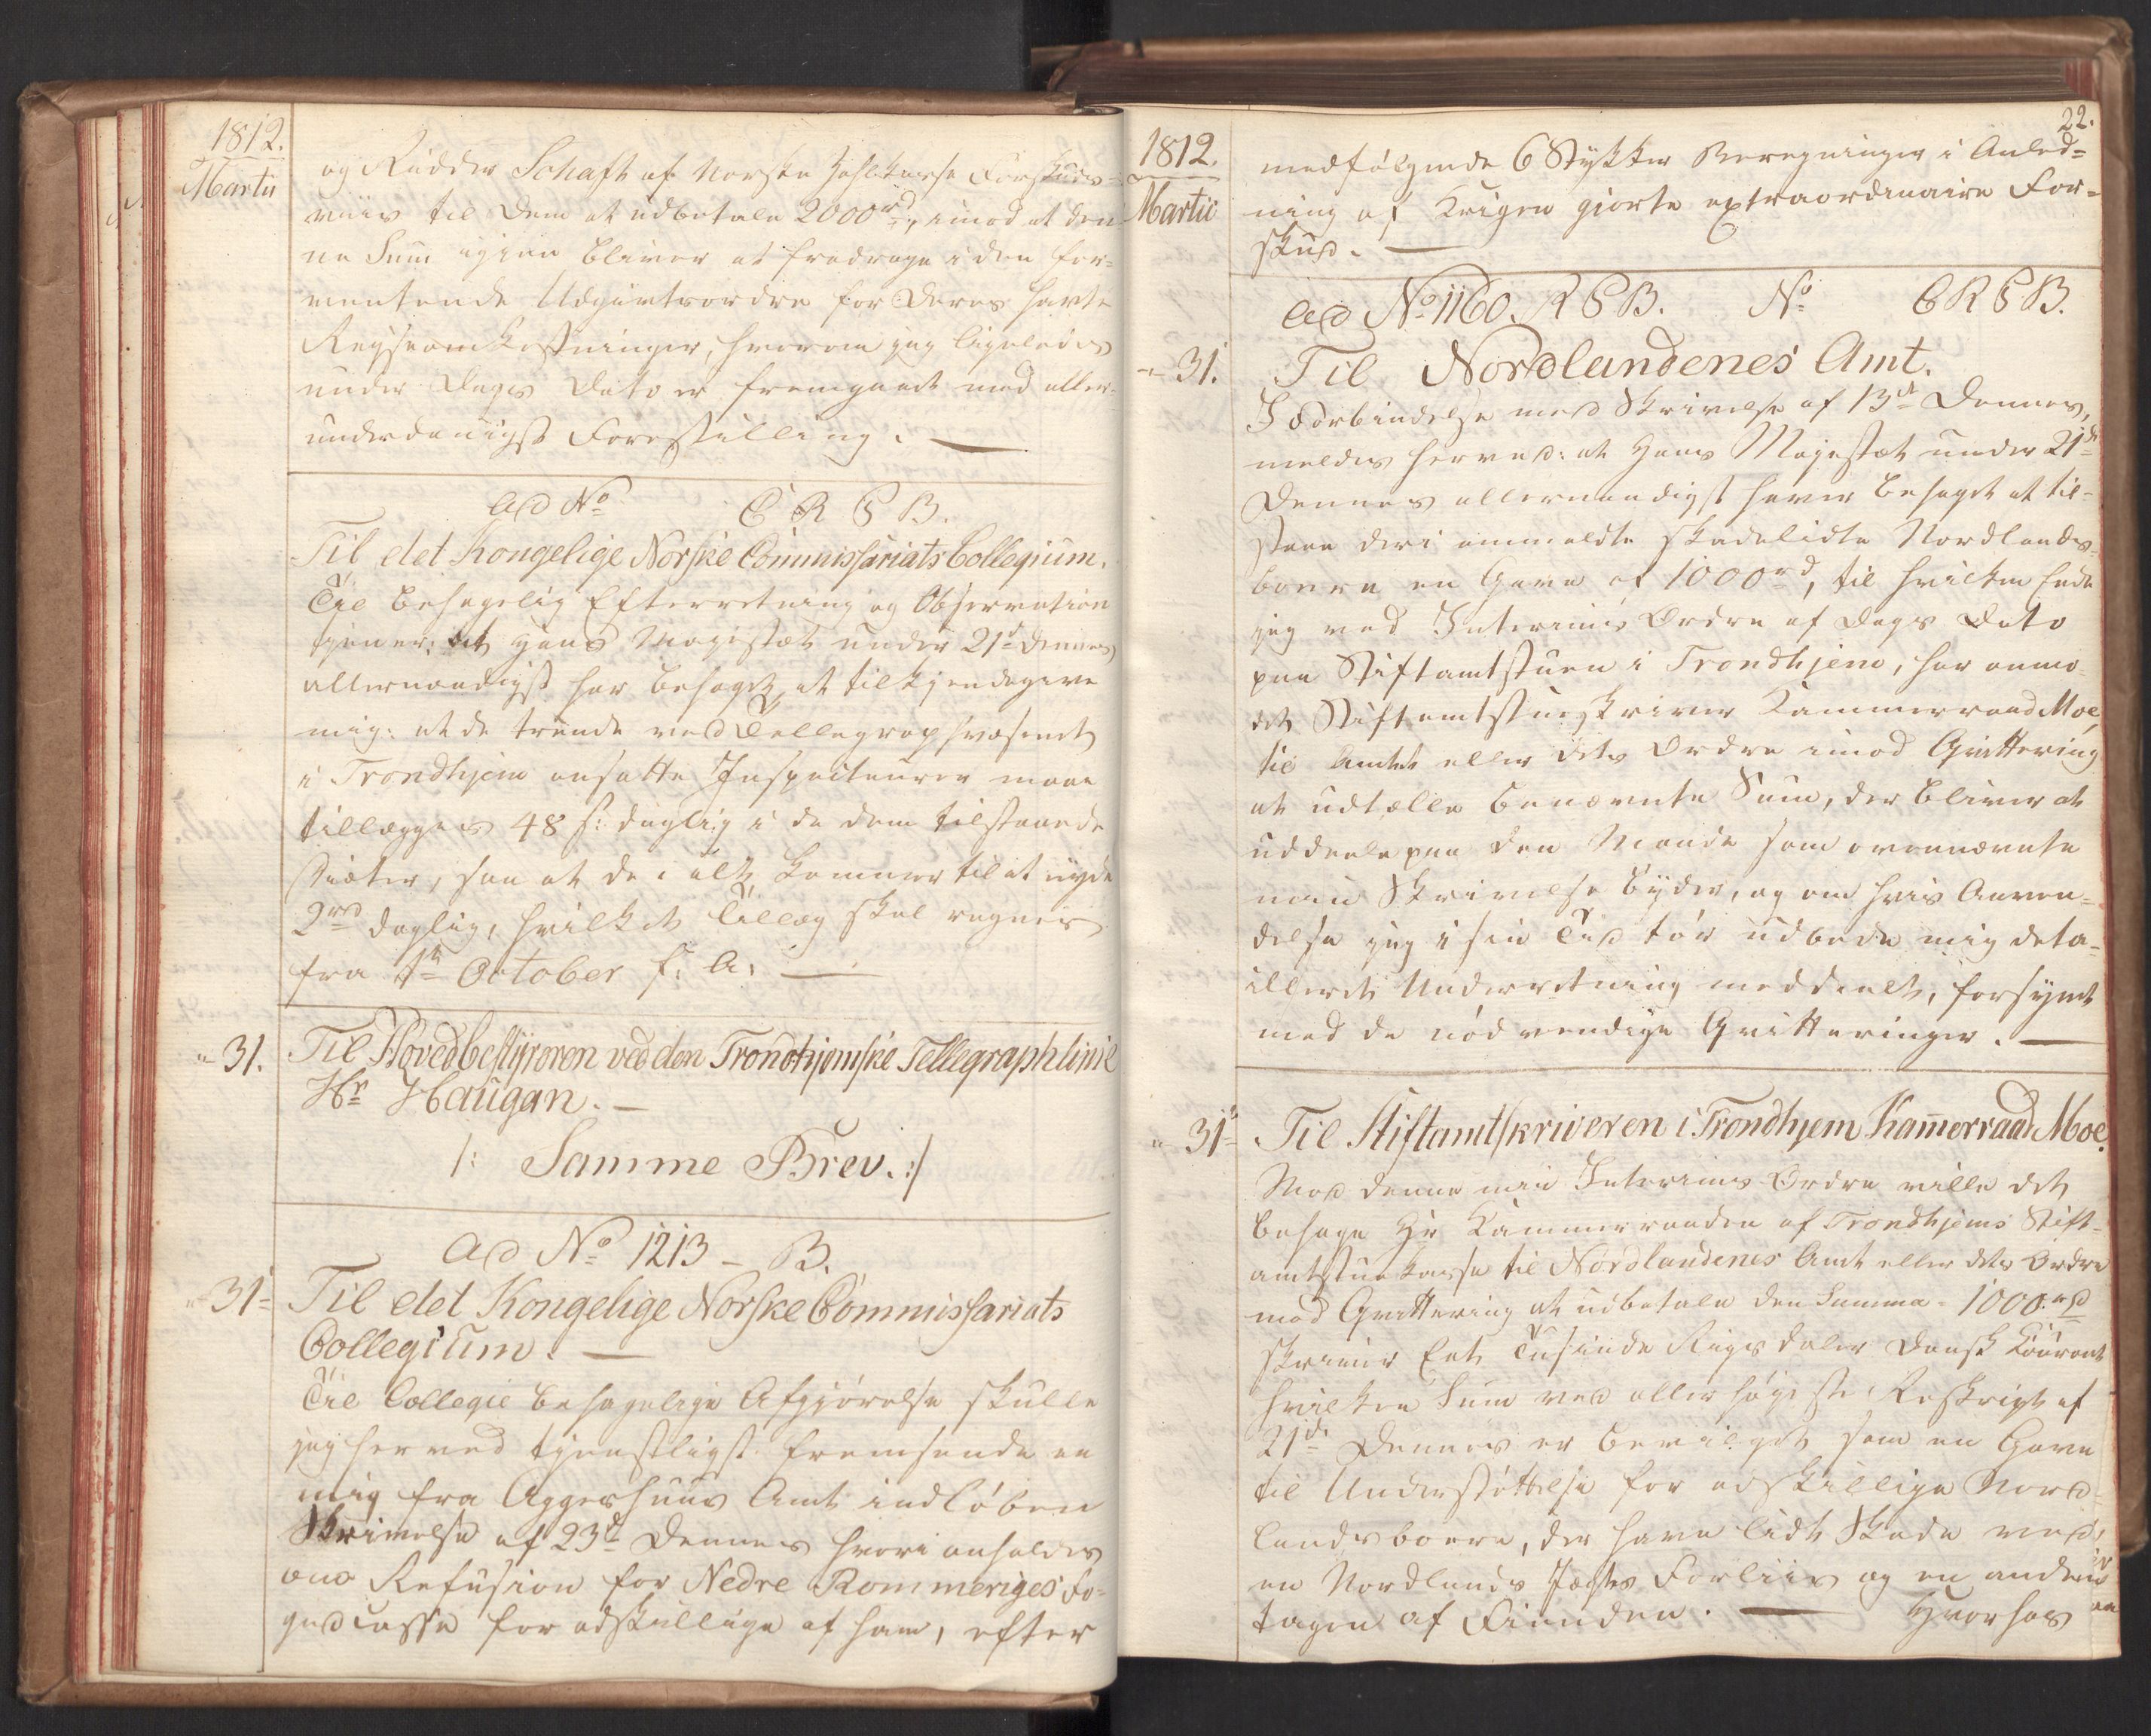 1812.
Martii
og Ridder Schaft af Norske Zahlkasse Forskuds-
viis til dem at udbetale 2000rd, imod at den
ne Sum igien bliver at fradrage i den for-
ventende Udgivtsordre for deres havte
Reyseomkostninger, hvorom jeg ligeledes
under Dags Dato er fremgaaet med aller-
underdanigst Forestilling.
ad No C R P B.
Til det Kongelige Norske Commissariats Collegium.
Til behagelig Efterretning og Observation
tjener: at Hans Majestæt under 21d dennes
allernaadigst har behaget at tilkjendegive
mig: at de trende ved Tellegraphvæsenet
i Trondhjem ansatte Inspecteurer maae
tillægges 48 s: daglig i de dem tilstaaede
Diæter, saa at de i alt kommer til at nyde
2rd daglig, hvilket Tillæg skal regnes
fra 1ste October f: A:
" 31. Til Hovedbestyreren ved den Trondhjemske Tellegraphlinie
Hr Haugan.
/: Samme Brev. :/
Ad No 1213 - B.
" 31 Til det Kongelige Norske Commissariats
Collegium.
Til Collegie behagelige Afgjørelse skulle
jeg herved tjenstligst fremsende en
mig fra Aggershuus Amt indløben
Skrivelse af 23d dennes hvori anholdes
om Refusion for Nedre Rommeriges Fo-
gedcasse for adskillige af ham, efter
22.
1812.
Martii
medfølgende 6 Stykker Beregninger i Anled-
ning af Krigen giorte extraordinaire For-
skud.
ad No 1160. R P B. No C R P B.
" 31. Til Nordlandenes Amt.
I Forbindelse med Skrivelse af 13d dennes,
meldes herved: at Hans Majestæt under 21de
dennes allernaadigst haver behaget at til-
staae deri ommeldte skadelidte Nordlands-
boere en Gave af 1000rd, til hvilken Ende
jeg ved Interims Ordre af Dags Dato
paa Stiftamtstuen i Trondhjem, har anmo-
det Stiftamtstueskriver Kammerraad Moe,
til Amtet eller dets Ordre imod Qvittering
at udtælle benævnte Sum, der bliver at
uddeele paa den Maade som ovennævnte
min Skrivelse byder, og om hvis Anven-
delse jeg i sin Tid tør udbede mig deta-
illeret Underretning meddeelt, forsynet
med de nødvendige Qvitteringer.
" 31 Til Stiftamtskriveren i Trondhjem Kammerraad Moe.
Mod denne min Interims Ordre ville det
behage Hr Kammerraaden af Trondhjems Stift-
amtstuekasse til Nordlandenes Amt eller dets Ordre
mod Qvittering at udbetale den Summa 1000.rd
skriver Eet Tusinde Rigsdaler Dansk Courant
hvilken Sum ved allerhøyeste Reskript af
21de dennes er bevilget som en Gave
til Understøttelse for adskillige Nord-
landsboere, der have lidt Skade ved
en Nordlands Jægts Forliis og en anden
tagen af Fienden. Hvorhos